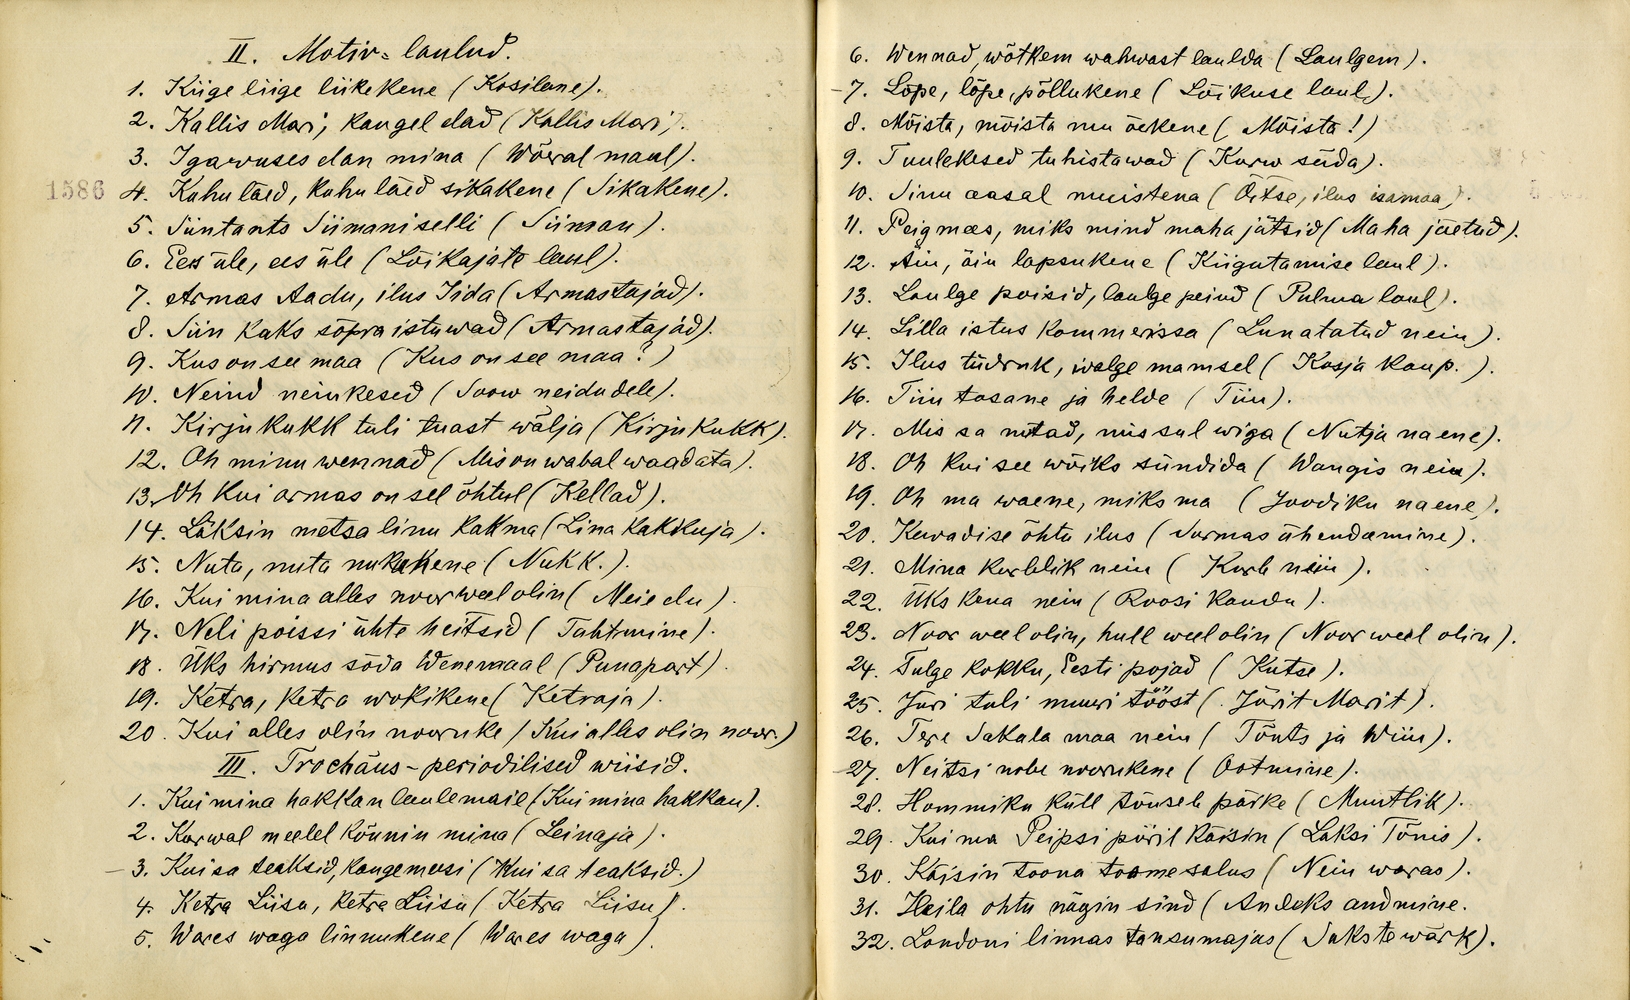 II. Motiv-laulud.
1. Kiige liige liikekene (Kosilane).
2. Kallis Mari, kaugel elad (Kallis Mari).
3. Igawuses elan mina (Wõeral maal).
1586
4. Kuhu läed, kuhu läed sikakene (Sikakene).
5. Siintants Siimaniselli (Siiman).
6. Ees üle, ees üle (Lõikajate laul).
7. Armas Aadu, ilus Iida (Armastajad).
8. Siin kaks sõpra istuwad (Armastajad).
9. Kus on see maa (Kus on see maa?)
10. Neiud neiukesed (Soow neidudele).
11. Kirjukukk tuli tuast wälja (Kirjukukk).
12. Oh minu wennad (Mis on wabal waadata).
13. Oh kui armas on sel õhtul (Kellad).
14. Läksin metsa linu kakma (Lina kakkuja).
15. Nuta, nuta nukukene (Nukk.).
16. Kui mina alles noor weel olin (Meie elu).
17. Neli poissi ühte heitsid (Tahtmine).
18. Üks hirmus sõda Wenemaal (Punapart).
19. Ketra, ketra wokikene (Ketraja).
20. Kui alles olin nooruke (Kui alles olin noor.)
III. Trochäus-periodilised wiisid.
1. Kui mina hakkan laulemaie (Kui mina hakkan).
2. Kurwal meelel kõnnin mina (Leinaja).
3. Kui sa teaksid, kangemeesi (Kui sa teaksid.)
4. Ketra Liisu, ketra Liisu (Ketra Liisu).
5. Wares waga linnukene (Wares waga).
6. Wennad, wõtkem wahwast laulda (Laulgem).
7. Lõpe, lõpe, põllukene (Lõikuse laul).
8. Mõista, mõista mu õekene (Mõista!)
9. Tuulekesed tuhistawad (Kurw süda).
10. Sinu aasal muistena (Õitse, ilus isamaa).
11. Peigmees, miks mind maha jätsid (Maha jäetud).
12. Äiu, äiu lapsukene (Kiigutamise laul).
13. Laulge poisid, laulge peiud (Pulma laul).
14. Lilla istus kammerissa (Lunatatud neiu).
15. Ilus tüdruk, walge mamsel (Kosja kaup.).
16. Tiiu tasane ja helde (Tiiu).
17. Mis sa nutad, mis sul wiga (Nutja naene).
18. Oh kui see wõiks sündida (Wangis neiu).
19. Oh ma waene, miks ma (Joodiku naene).
20. Kewadise õhtu ilus (Surmas ühendamine).
21. Mina kurblik neiu (Kurb neiu).
22. Üks kena neiu (Roosi kandu).
23. Noor weel olin, hull weel olin (Noor weel olin).
24. Tulge kokku, Eesti pojad (Kutse).
25. Jüri tuli muuri tööst (Jürit Marit).
26. Tere Sakala maa neiu (Tõnts ja Wiiu).
27. Neitsi nobe noorukene (Ootmine).
28. Hommiku küll tõuseb päike (Muutlik).
29. Kui ma Peipsi pääril käisin (Laksi Tõnis).
30. Käisin toona toomesalus (Neiu waras).
31. Heila ohtu nägin sind (Andeks andmine.
32. Londoni linnas tansumajas (Sakste wärk).